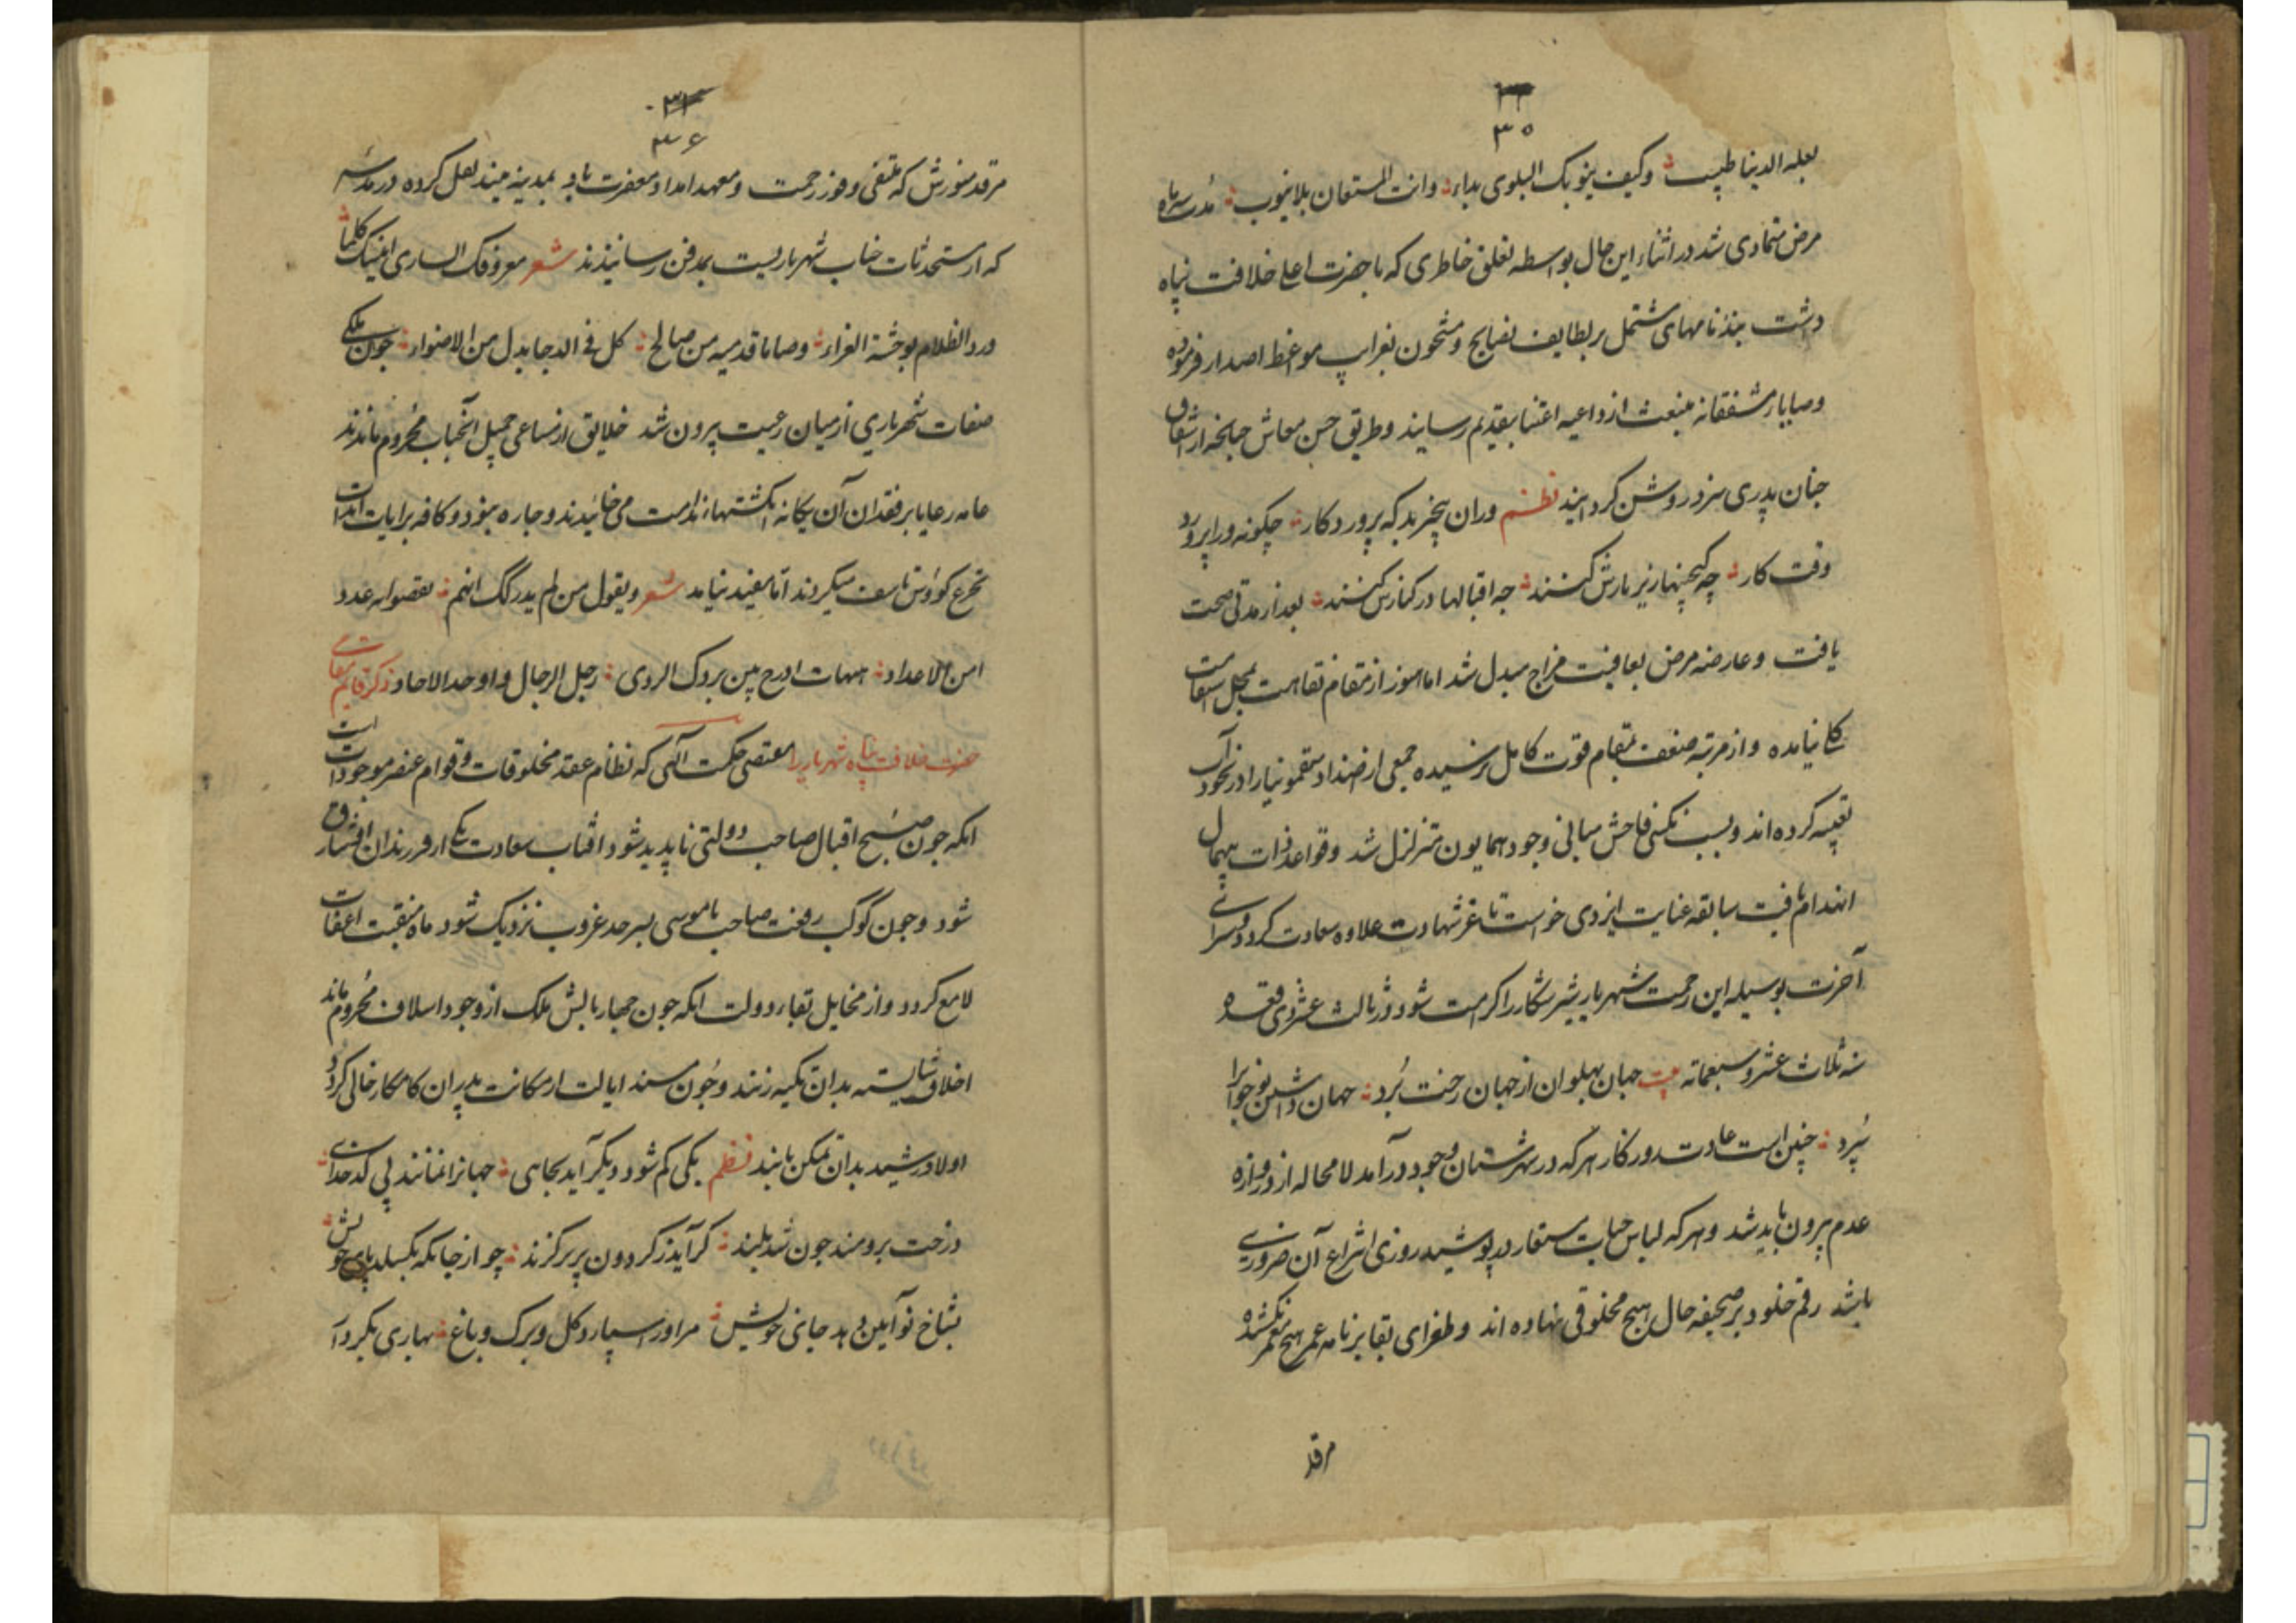 ۳۵
لعله الدنیا طبیب وکیف ینوبک البلوی بداء وانت المستعان بلا ینوب مدت سه ماه
مرض متمادی شد در اثناء این حال بواسطه تعلق خاطری که با حضرت اعلی خلافت پناه
داشت پندنامهای مشتمل بر لطایف نصایح و مشحون بغرایب مواعظ اصدار فرموده
وصایاء مشفقانه منبعث از داعیه اعتنا بتقدیم رسانید و طریق حسن معاش جنانجه از اشفاق
جنان پدری سزد روشن کردانید نظم وران بیخبر بد که پروردکار چکونه ورا پرورد
وقت کار چه کنجینها زیر بارش کشند چه اقبالها در کنارش کشند بعد از مدتی صحت
یافت و عارضه مرض بعافیت مزاج مبدل شد اما هنوز از مقام نقاهت بمحل استقامت
کلی نیامده و از مرتبه ضعف بمقام قوت کامل نرسیده جمعی از ضداد سقمونیا را در نخود آب
تعبیه کرده اند و بسبب نکسی فاحش مبانی وجود همایون متزلزل شد و قواعد ذات بیهمال
انهدام یافت سابقه عنایت ایزدی خواست تا عز شهادت علاوه سعادت کردد و سرای
آخرت بوسیله این رحمت شهریار شیر شکار را کرامت شود در ثالث عشر ذی قعده
سنه ثلاث عشر و سبعمائه بیت جهان پهلوان از جهان رخت برد جهان داشتن نوجوانرا
سپرد چنین است عادت روزکار هر که در شهرستان وجود درآمد لا محاله از دروازه
عدم بیرون باید شد و هر که لباس حیات مستعار در پوشید روزی انتزاع آن ضروری
باشد رقم خلود بر صحیفه حال هیچ مخلوقی ننهاده اند و طغرای بقا بر نامه عمر هیچ معمر نکشیده
مرقد
۳۶
مرقد منورش که ملتقی وفور رحمت و معهد امداد مغفرت باد بمدینه میبد نقل کرده در مدرسه
که از مستحدثات جناب شهریاریست بمدفن رسانیدند شعر معروفک الساری اغنیک کلما
ورد الظلام بوحشة الغراء وصاما قدمیه من صالح کل فی الدجا بدل من الاضواء جون ملکی
صفات شهریاری از میان رعیت بیرون شد خلایق از مساعی جمیل آنجناب محروم ماندند
عامه رعایا بر فقدان آن یکانه انکشتهاء ندامت می خائیدند و جاره نبود و کافه برایات
تجرع کؤوس تاسف میکردند اما مفید نیامد شعر ویقول من لم یدر کنک انهم نقصوا به عددا
من الاعداد هیهات ادرج بین بردیک الردی رجل الرجال و اوحد الاحاد ذکر قایم مقامی
حضرت خلافت پناه شهریاریرا مقتضی حکمت الهی که نظام عقد مخلوقات و قوام عنصر موجودات است
انکه جون صبح اقبال صاحب دولتی ناپدید شود افتاب سعادت یکی از فرزندان افق شارق
شود و جون کوکب رفعت صاحب ناموسی بسرحد غروب نزدیک شود ماه منقبت اعقاب
لامع کردد و از مخایل بقاء دولت انکه جون چهار بالش ملک از وجود اسلاف محروم ماند
اخلاف شایسته بدان تکیه زنند و جون مسند ایالت از مکانت پدران کامکار خالی کردد
اولاد رشید بدان تمکن یابند نظم یکی کم شود دیکر آید بجای جهانرا نمانند بی کدخدای
درخت برومند جون شد بلند کر آید ز کردون برو بر کزند چو از جایکه بکسلد پای خویش
بشاخ نوآیین دهد جای خویش مراورا سپارد کل و برک و باغ بهاری بکردار